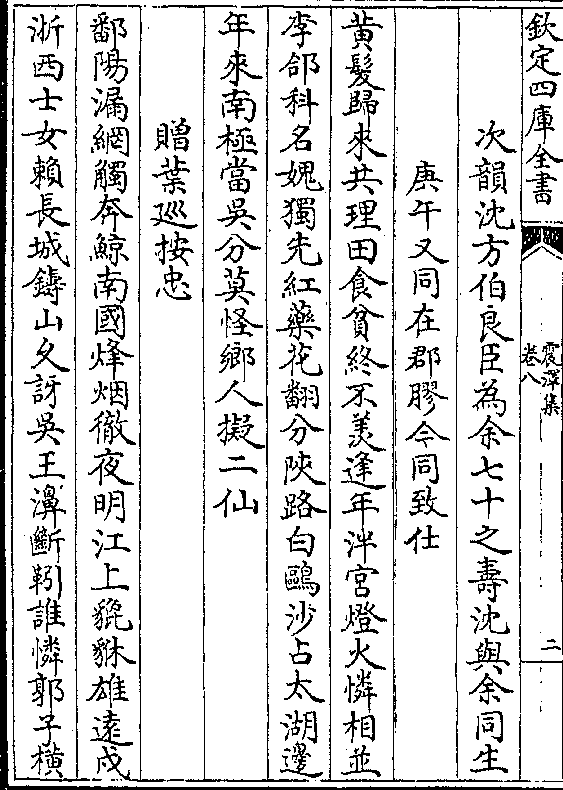 欽定四庫全書
震澤集
卷八
二
次韻沈方伯良臣為余七十之壽沈與余同生
庚午又同在郡膠今同致仕
黄髮歸來共理田食貧終不羨逢年泮宮燈火憐相並
李郃科名媿獨先紅藥花翻分陜路白鷗沙占太湖邊
年來南極當吳分莫怪鄉人擬二仙
贈葉廵按忠
鄱陽漏網觸奔鯨南國烽烟徹夜明江上貔貅雄逺戍
浙西士女賴長城鑄山久訝吳王濞斷靷誰憐郭子橫